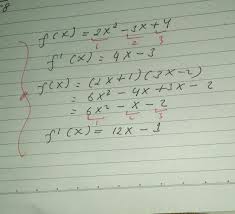 f(x) = 2x² - 3x + 4
1 2 3
f'(x) = 4x - 3
f(x) = (2x+1)(3x-2)
= 6x² - 4x + 3x - 2
= 6x² - x - 2
1 2 3
f'(x) = 12x - 3